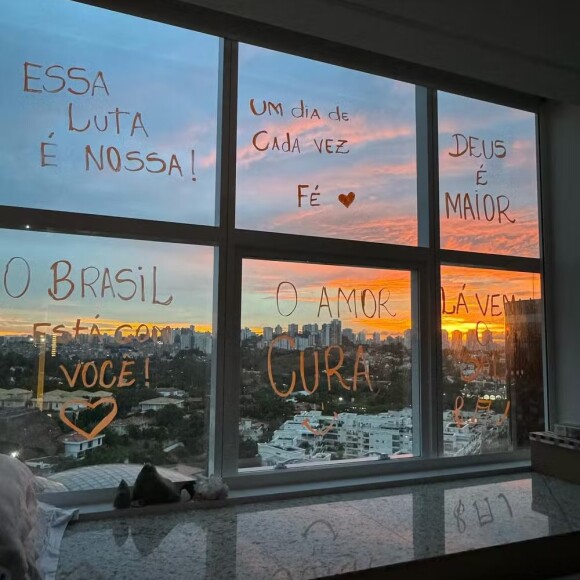 ESSA
LUTA
É NOSSA!
UM DIA DE
CADA VEZ
FÉ ♥
DEUS
É
MAIOR
O BRASIL
ESTÁ COM
VOCE!
O AMOR
CURA
LÁ VEM
O